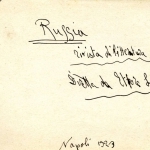 Russia
rivista di letteratura
diretta da Ettore L
Napoli 1923